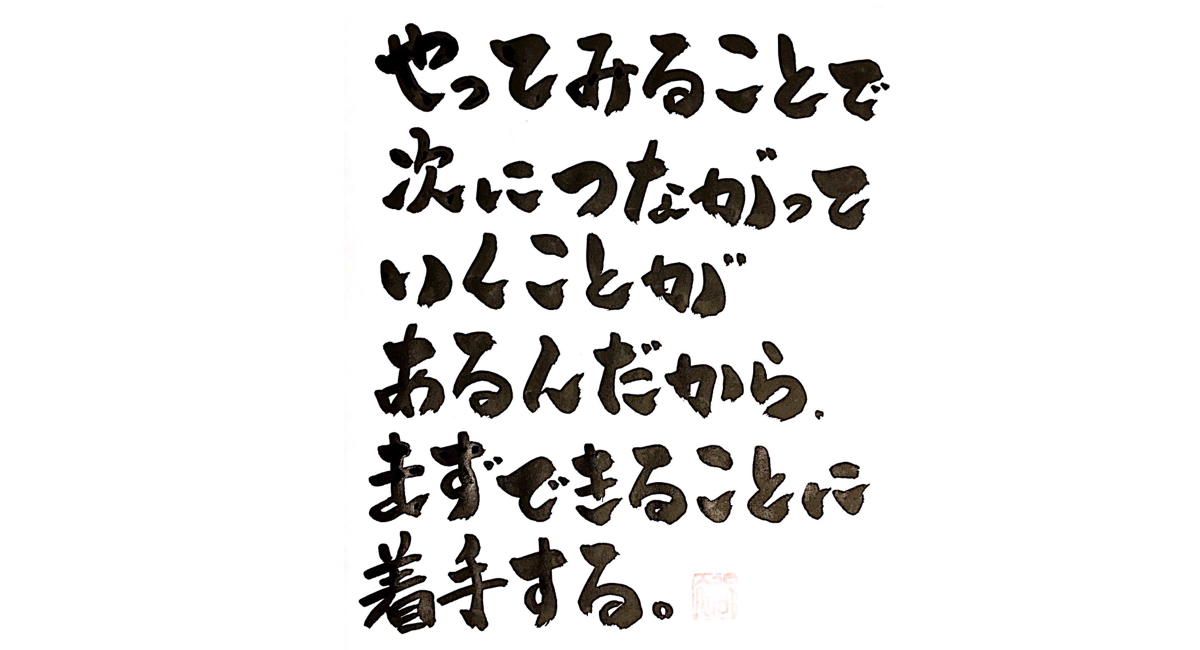 やってみることで
次につながって
いくことが
あるんだから、
まずできることに
着手する。